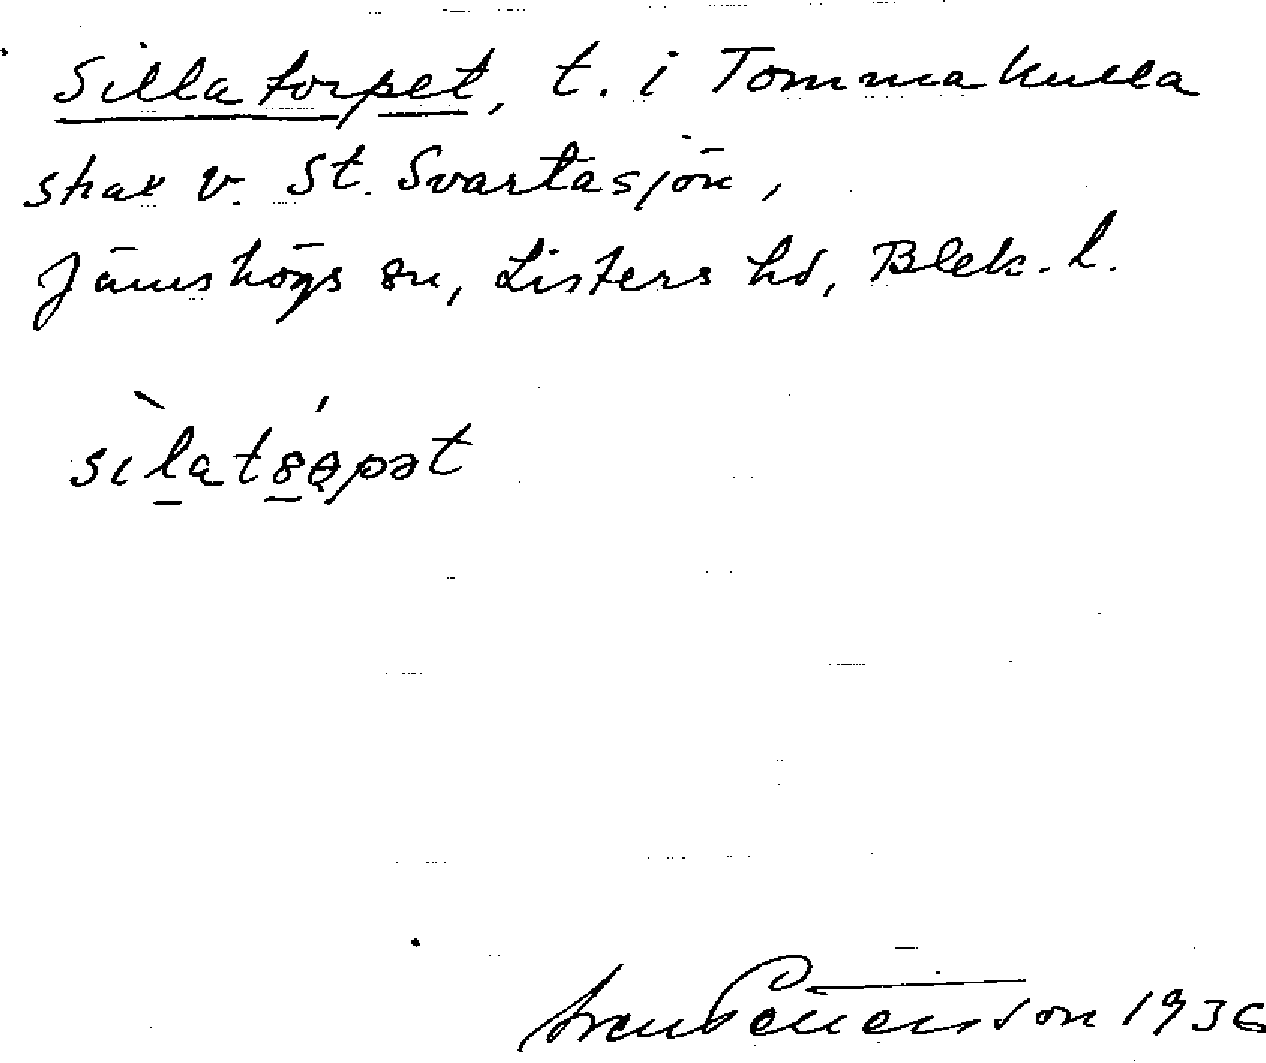 Sillatorpet, t. i Tommakulla
strax v. St. Svartasjön,
Jämshögs sn, Listers hd, Blek. l.
sìlatȣ́ɵpət
Sven Pettersson 1936